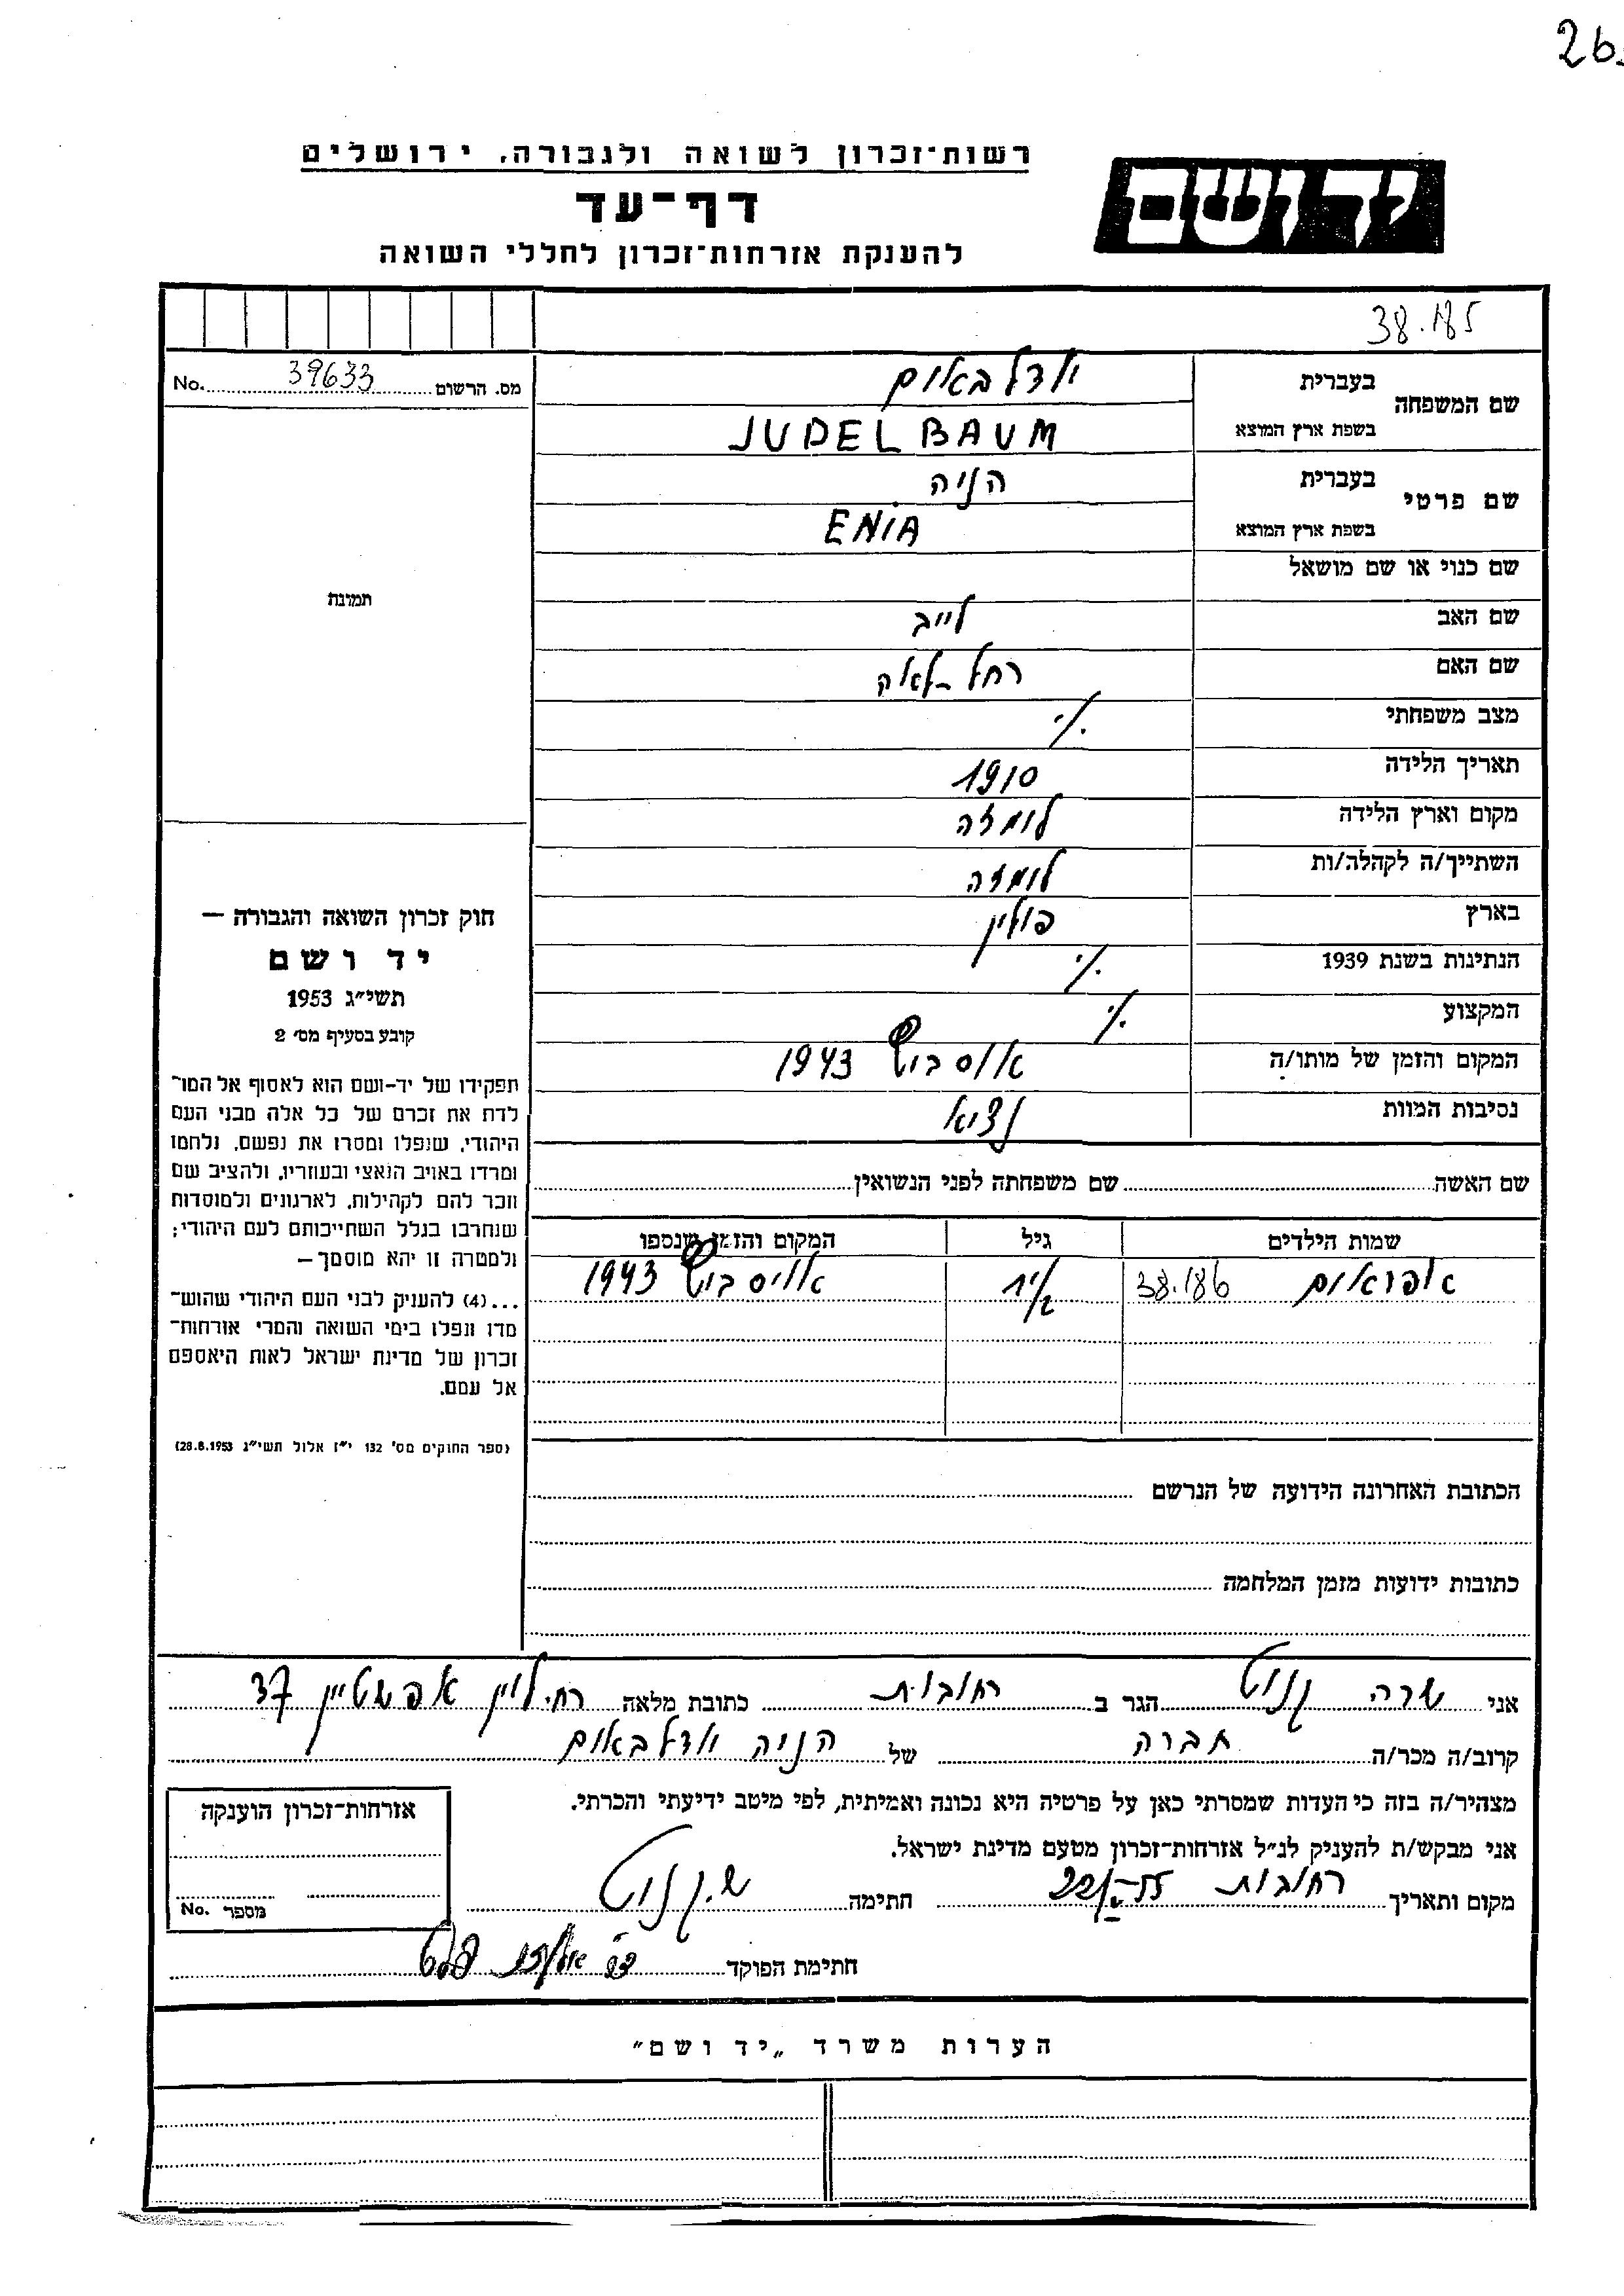 26
רשות־זכרון לשואה ולגבורה, ירושלים
יד ושם
דף־עד
להענקת אזרחות־זכרון לחללי השואה
38.185
שם המשפחה בעברית יודלבאום
בשפת ארץ המוצא JUDELBAUM
שם פרטי בעברית הניה
בשפת ארץ המוצא ENIA
שם כנוי או שם מושאל
שם האב לייב
שם האם רחל-לאה
מצב משפחתי ./.
תאריך הלידה 1910
מקום וארץ הלידה לומזה
השתייך/ה לקהלה/ות לומזה
בארץ פולין
הנתינות בשנת 1939 ./.
המקצוע ./.
המקום והזמן של מותו/ה 1943
נסיבות המוות
מס. הרשום 39633 No.
תמונה
חוק זכרון השואה והגבורה —
יד ושם
תשי״ג 1953
קובע בסעיף מס׳ 2
תפקידו של יד-ושם הוא לאסוף אל המו־
לדת את זכרם של כל אלה מבני העם
היהודי, שנפלו ומסרו את נפשם, נלחמו
ומרדו באויב הנאצי ובעוזריו, ולהציב שם
וזכר להם לקהילות, לארגונים ולמוסדות
שנחרבו בגלל השתייכותם לעם היהודי;
ולמטרה זו יהא מוסמך—
...(4) להעניק לבני העם היהודי שהוש־
מדו ונפלו בימי השואה והמרי אזרחות־
זכרון של מדינת ישראל לאות היאספם
אל עמם.
(ספר החוקים מס׳ 132 י״ז אלול תשי״ג 28.8.1953)
שם האשה שם משפחתה לפני הנשואין
שמות הילדים גיל המקום והזמן שנספו
אפראום 38.186 1/2 1943
הכתובת האחרונה הידועה של הנרשם
כתובות ידועות מזמן המלחמה
אני שרה הגר ב רחובות כתובת מלאה רח׳ לוין אפשטיין 37
קרוב/ה מכר/ה חברה של הניה יודלבאום
מצהיר/ה בזה כי העדות שמסרתי כאן על פרטיה היא נכונה ואמיתית, לפי מיטב ידיעתי והכרתי.
אני מבקש/ת להעניק לנ״ל אזרחות־זכרון מטעם מדינת ישראל.
מקום ותאריך רחובות חתימה
חתימת הפוקד
אזרחות־זכרון הוענקה
מספר No.
הערות משרד „יד ושם״